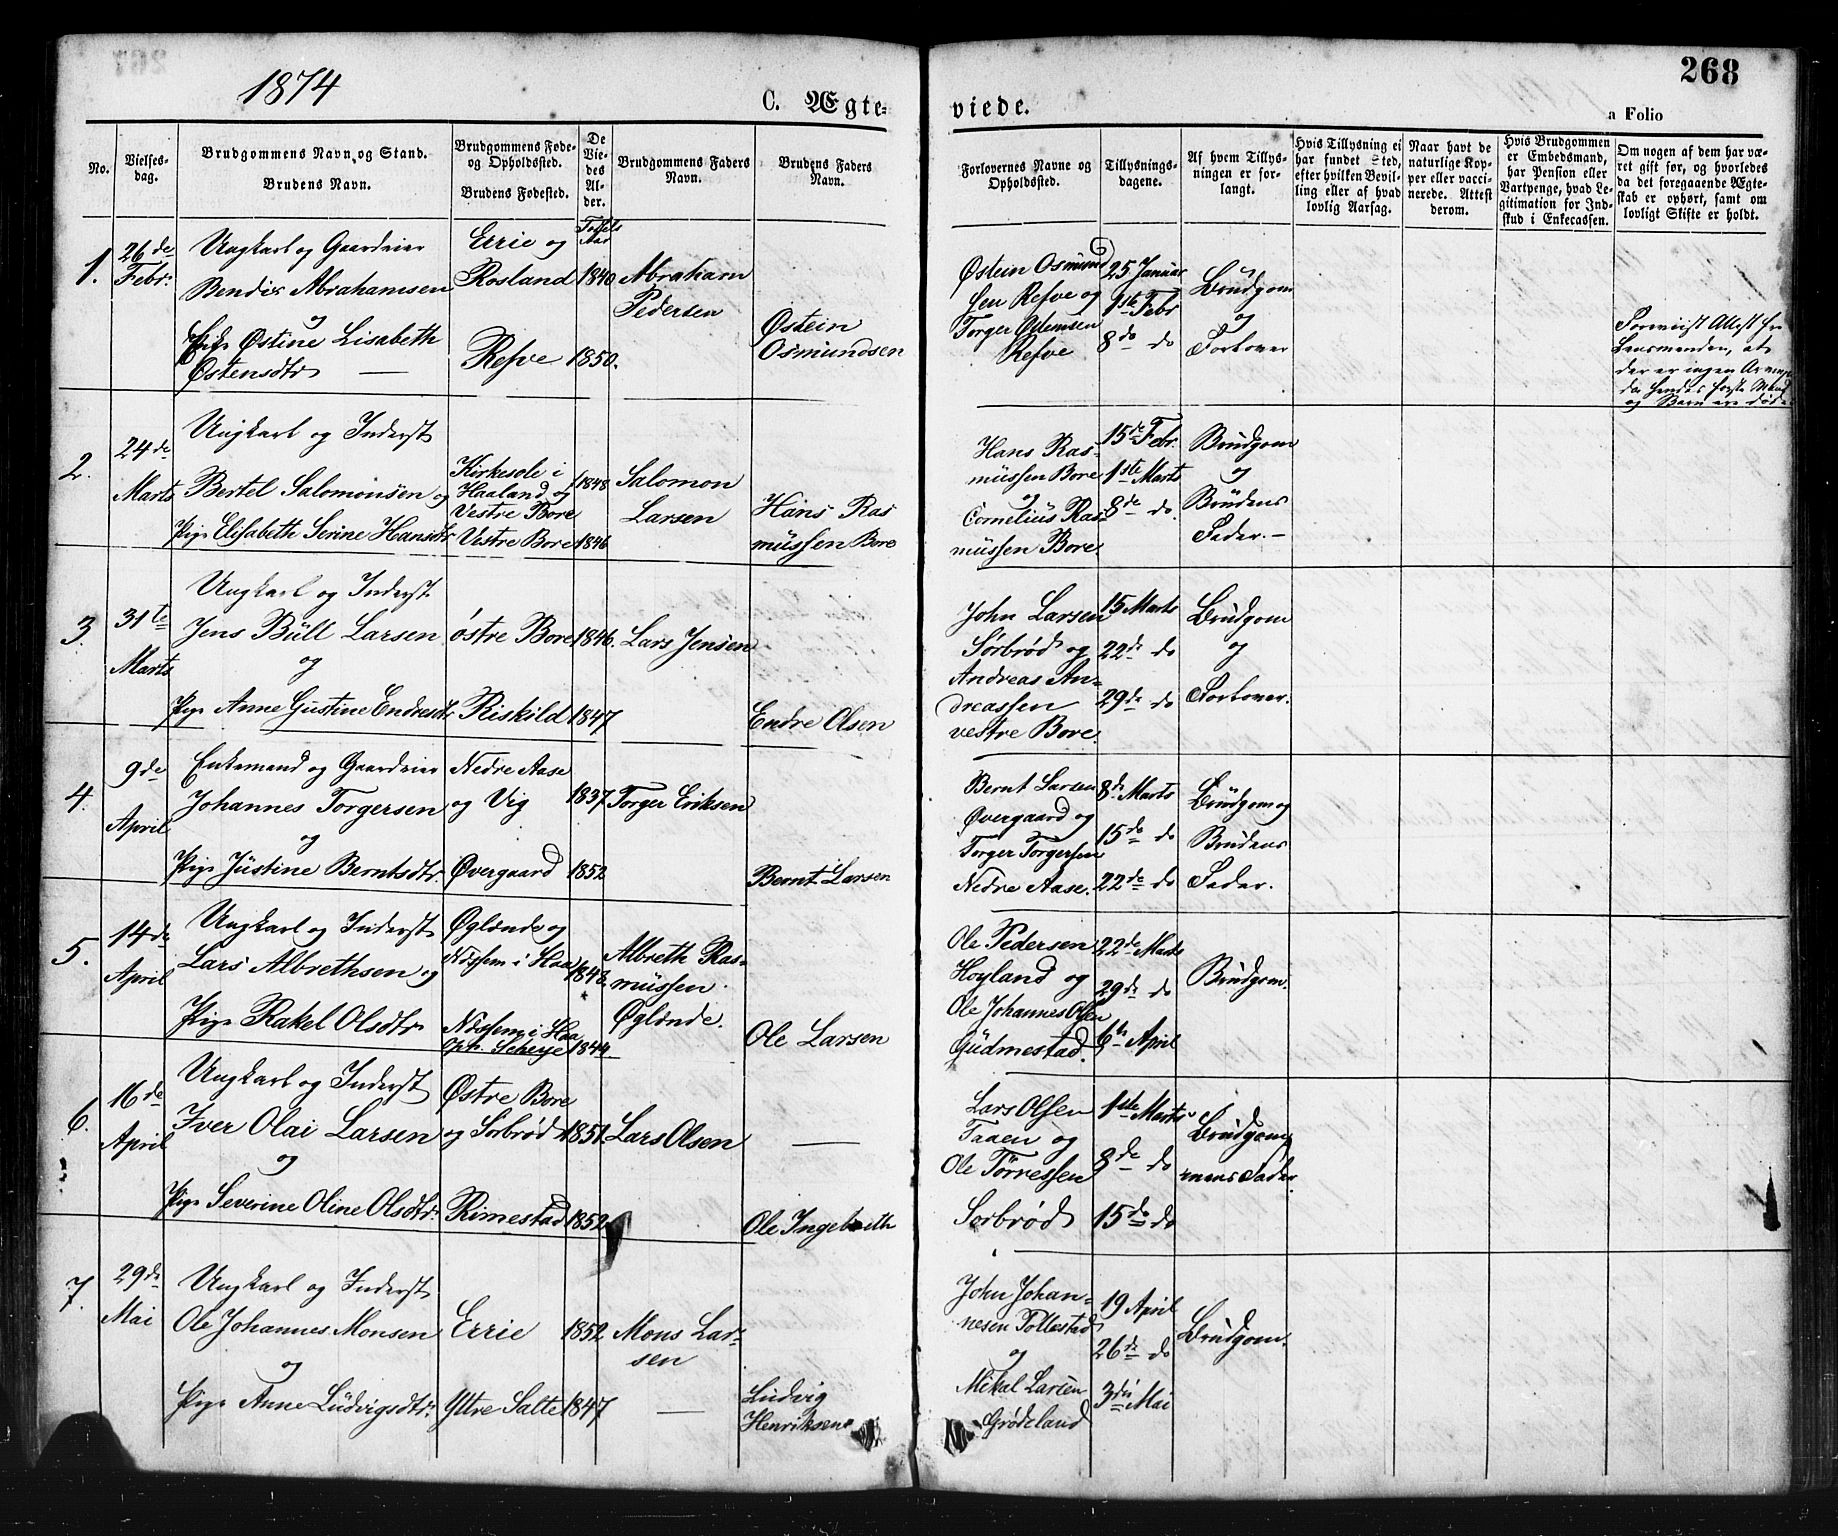 1874
C. Ægte-
viede.
268
a Folio
No.
Vielses-
dag.
Brudgommens Navn og Stand.
Brudens Navn.
Brudgommens Føde-
og Opholdssted.
Brudens Fødested.
De
Vie-
des
Al-
der.
Brudgommens Faders
Navn.
Brudens Faders
Navn.
Forlovernes Navne og
Opholdssted.
Tillysnings-
dagene.
Af hvem Tillys-
ningen er for-
langt.
Hvis Tillysning ei
har fundet Sted,
efter hvilken Bevil-
ling eller af hvad
lovlig Aarsag.
Naar havt de
naturlige Kop-
per eller vacci-
nerede. Attest
derom.
Hvis Brudgommen
er Embedsmand,
har Pension eller
Vartpenge, hvad Le-
gitimation for Ind-
skud i Enkecassen.
Om nogen af dem har væ-
ret gift før, og hvorledes
da det foregaaende Ægte-
skab er ophørt, samt om
lovligt Skifte er holdt.
1.
26de
Febr.
Ungkarl og Gaardeier
Bendix Abrahamsen
og
Enke Østine Lisabeth
Østensdtr
Errie og
Rosland
Refve
Fødsels
Aar
1840
1850.
Abraham
Pedersen
Østein
Osmundsen
Østein Osmund
sen Refve og
Torger Osmundsen
Refve
25 Januar
1ste Febr
8de do
Brudgom
og
Forlover
Foreviist Attest fra
Lensmanden, at
der er ingen Arvinge
da hendes første Mand
og Barn ere døde.
2.
24de
Marts
Ungkarl og Inderst
Bertel Salomonsen og
Pige Elisabeth Serine Hansdtr
Kirkesole i
Haaland og
Vestre Bore
Vestre Bore
1848
1846
Salomon
Larsen
Hans Ras
mussen Bore
Hans Ras-
mussen Bore
og
Cornelius Ras-
mussen Bore.
15de Febr.
1ste Marts
8de do.
Brudgom
og
Brudens
Fader.
3.
31te
Marts
Ungkarl og Inderst
Jens Bull Larsen
og
Pige Anne Gustine Endresdtr
Østre Bore
Riskild
1846.
1847
Lars Jensen
Endre Olsen
John Larsen
Sørbrød og
Andreas An-
dreassen
vestre Bore.
15 Marts
22de do
29de do
Brudgom
og
Forlover.
4.
9de
April
Enkemand og Gaardeier
Johannes Torgersen
og
Pige Justine Berntsdtr.
Nedre Aase
og Vig
Øvergaard
1837
1852
Torger Eriksen
Bernt Larsen
Bernt Larsen
Øvergaard og
Torger Torgersen
Nedre Aase.
8de Marts
15de do
22de do
Brudgom og
Brudens
Fader.
5.
14de
April
Ungkarl og Inderst
Lars Albrethsen og
Pige Rakel Olsdtr
Øglænde og
Nissem i Haa
Nissem i Haa
1848.
1844
Albreth Ras-
mussen
Øglænde.
Ole Larsen
Ole Pedersen
Hoyland og
Ole Johannes Olsen
Gudmestad.
22de Marts
29de do
6te April
Brudgom.
6.
16de
April
Ungkarl og Inderst
Iver Olai Larsen
og
Pige Severine Oline Olsdtr.
Østre Bore
og Sørbrød
Rimestad
1851.
1852
Lars Olsen
Ole Ingebreth
Lars Olsen
Taaen og
Ole Tørressen
Sørbrød
1ste Marts
8de do
15de do
Brudgom
mens Fader.
7.
29de
Mai
Ungkarl og Inderst
Ole Johannes Monsen
og
Pige Anne Ludvigsdtr.
Errie
Yttre Salte
1852.
1847
Mons Lar-
sen
Ludvig
Henriksen
John Johan-
nesen Tollestad
og
Mikal Larsen
Grødeland
19 April
26de do
3die Mai
Brudgom.